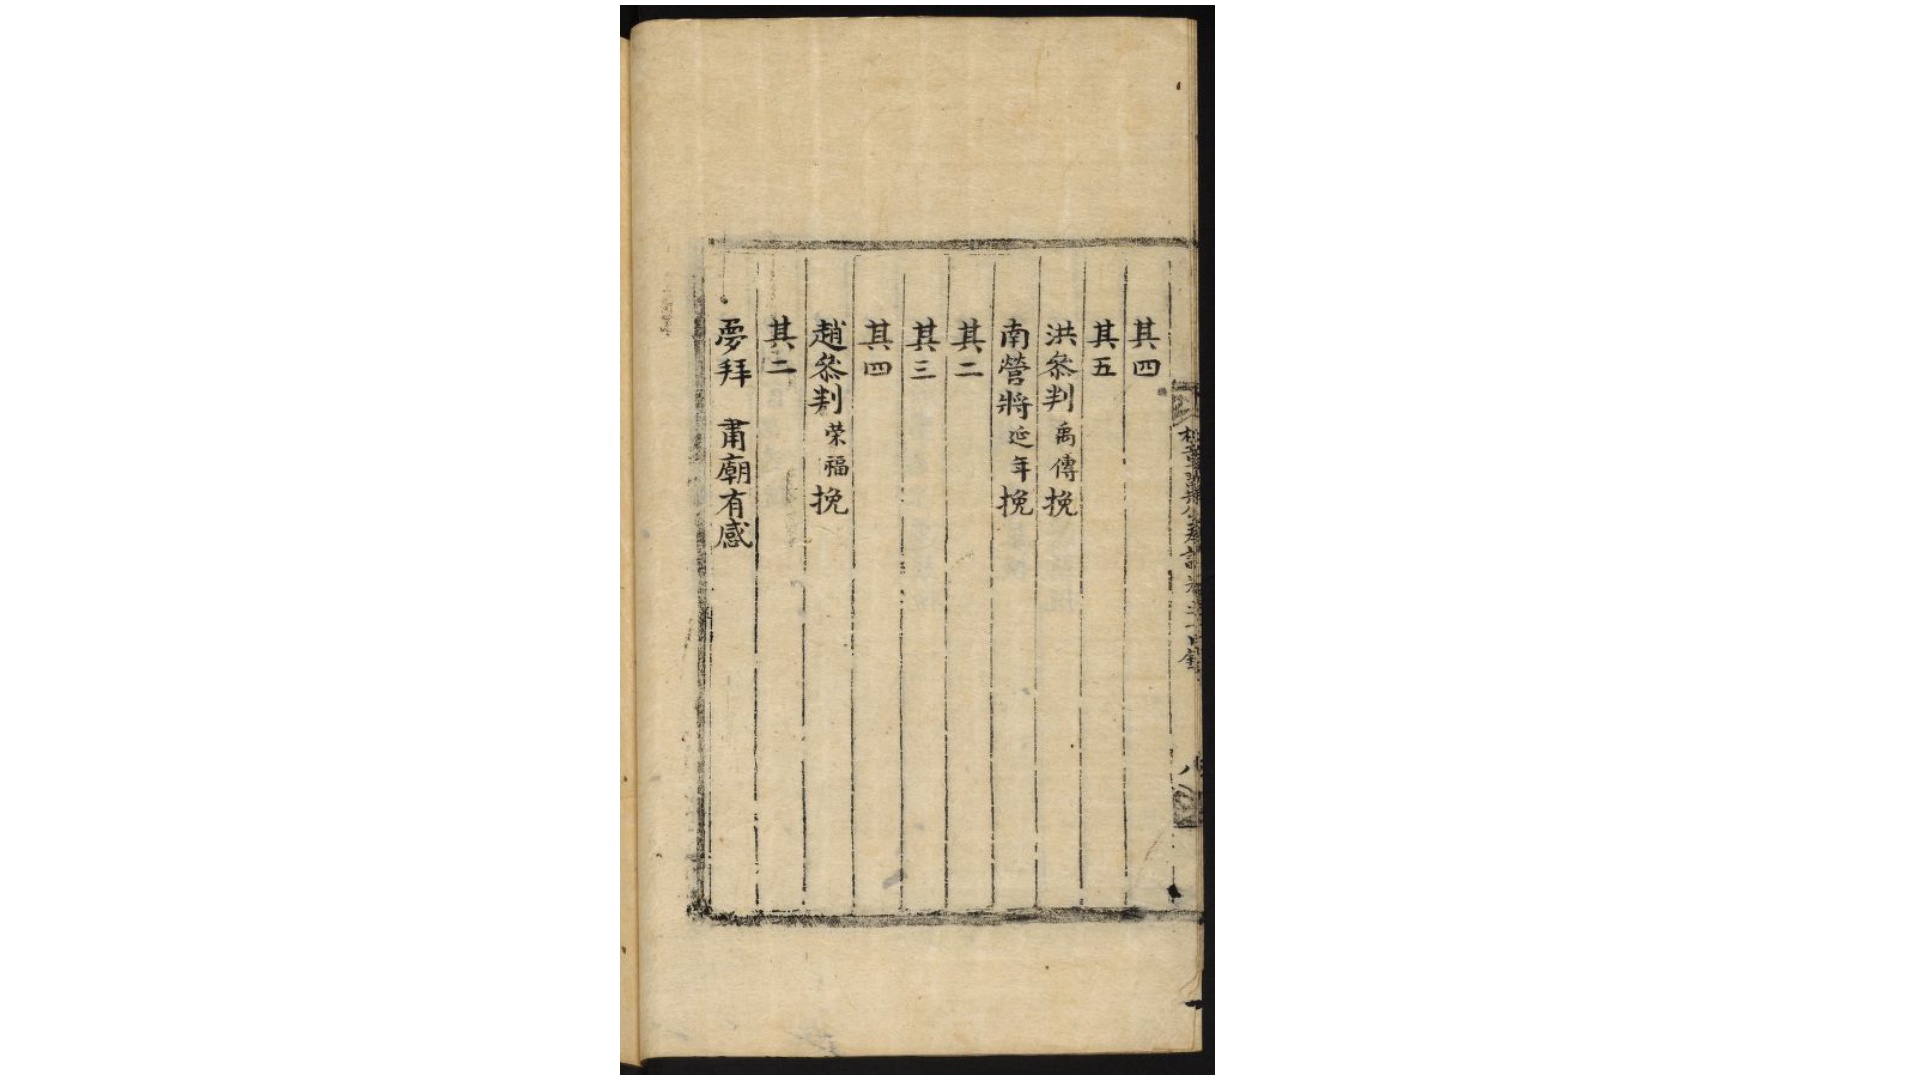 其四
其五
洪叅判禹傳挽
南營將延年挽
其二
其三
其四
趙叅判榮福挽
其二
夢拜 肅廟有感
八